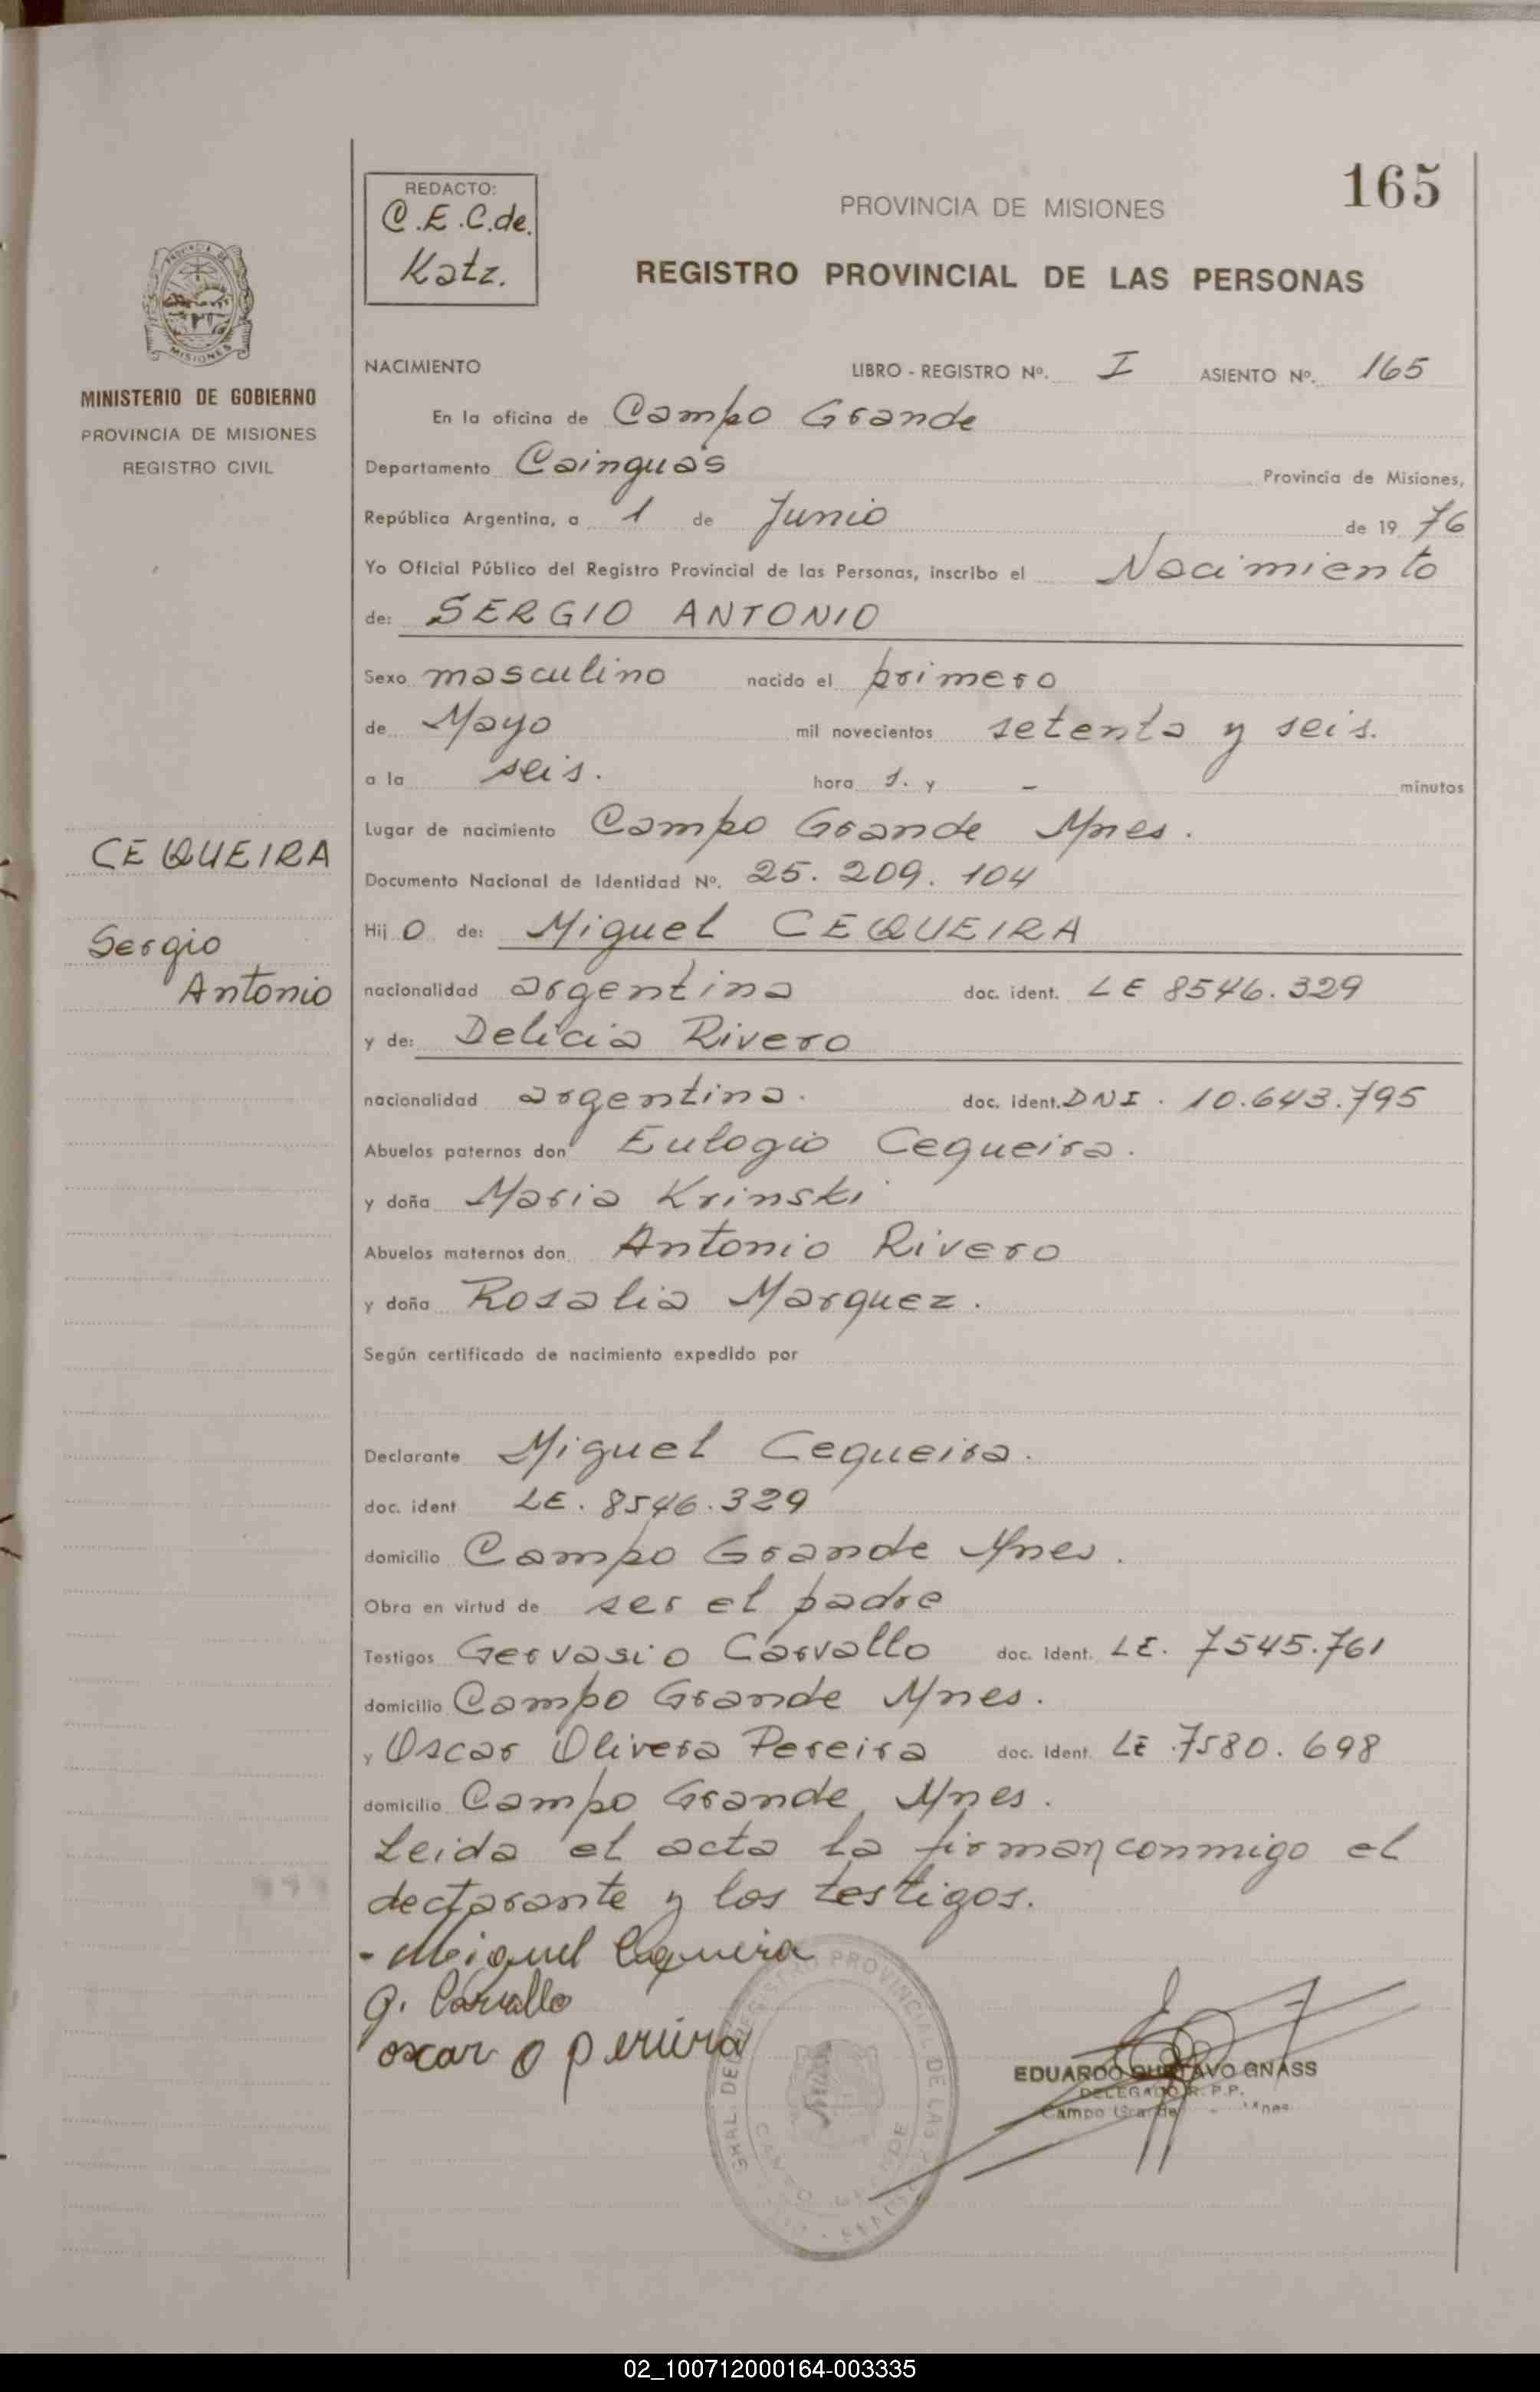 165
REDACTO:
C.E.C. de.
Katz.
PROVINCIA DE MISIONES
REGISTRO PROVINCIAL DE LAS PERSONAS
MISIONES
MINISTERIO DE GOBIERNO
PROVINCIA DE MISIONES
REGISTRO CIVIL
NACIMIENTO LIBRO - REGISTRO Nº. I ASIENTO Nº. 165
En la oficina de Campo Grande
Departamento Cainguás Provincia de Misiones,
República Argentina, a 1 de Junio de 19 76
Yo Oficial Público del Registro Provincial de las Personas, inscribo el Nacimiento
de: SERGIO ANTONIO
Sexo masculino nacido el primero
de Mayo mil novecientos setenta y seis.
a la seis. hora s. y - minutos
Lugar de nacimiento Campo Grande Mnes.
CEQUEIRA
Documento Nacional de Identidad Nº. 25.209.104
Hij o de: Miguel CEQUEIRA
Sergio
Antonio
nacionalidad argentina doc. ident. LE 8546.329
y de: Delicia Rivero
nacionalidad argentina. doc. ident. DNI. 10.643.795
Abuelos paternos don Eulogio Cequeira.
y doña Maria Krinski
Abuelos maternos don Antonio Rivero
y doña Rosalia Marquez.
Según certificado de nacimiento expedido por
Declarante Miguel Cequeira.
doc. ident LE. 8546.329
domicilio Campo Grande Mnes.
Obra en virtud de ser el padre
Testigos Gervasio Carvallo doc. ident. LE. 7545.761
domicilio Campo Grande Mnes.
y Oscar Olivera Pereira doc. ident. LE .7580.698
domicilio Campo Grande, Mnes.
Leida el acta la firman conmigo el
declarante y los testigos.
- Miguel Cequeira
G. Carvallo
oscar O pereira
REGISTRO PROVINCIAL DE LAS
EDUARDO GUSTAVO GNASS
DELEGADO R.P.P.
Campo Grande - Mnes
02_100712000164-003335